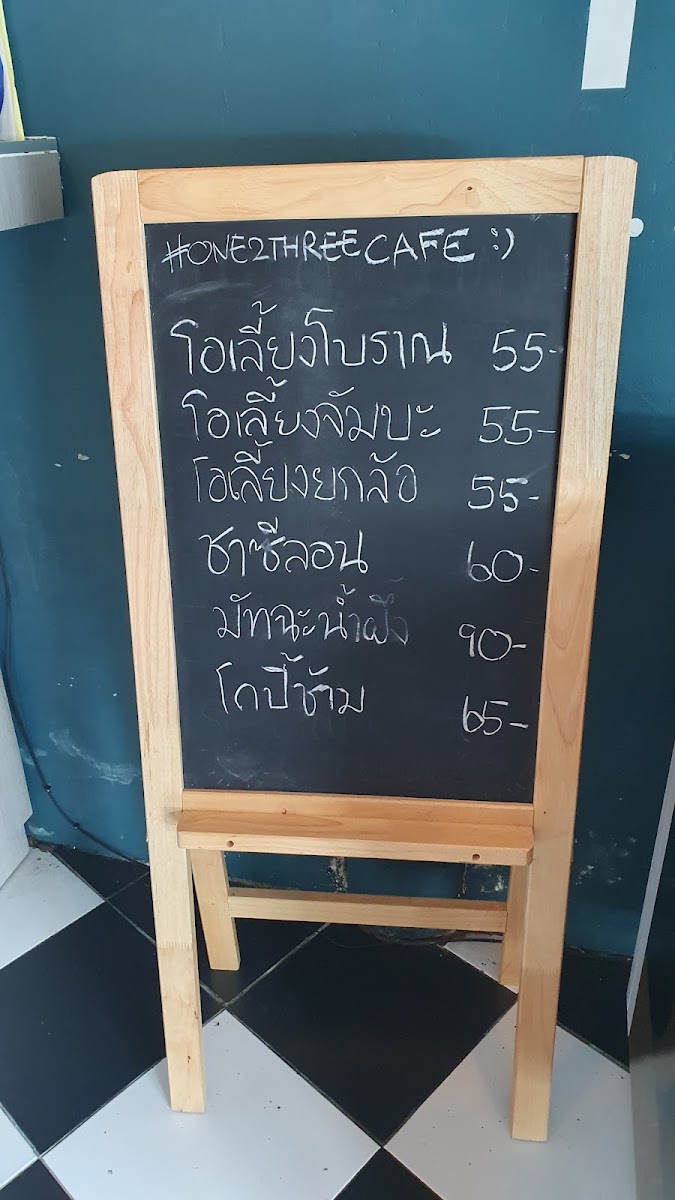 #ONE2THREECAFE :)
โอเลี้ยงโบราณ 55-
โอเลี้ยงจัมบะ 55-
โอเลี้ยงยกล้อ 55-
ชาซีลอน 60-
มัทฉะน้ำผึ้ง 90-
โกปี๊ช้าม 65-